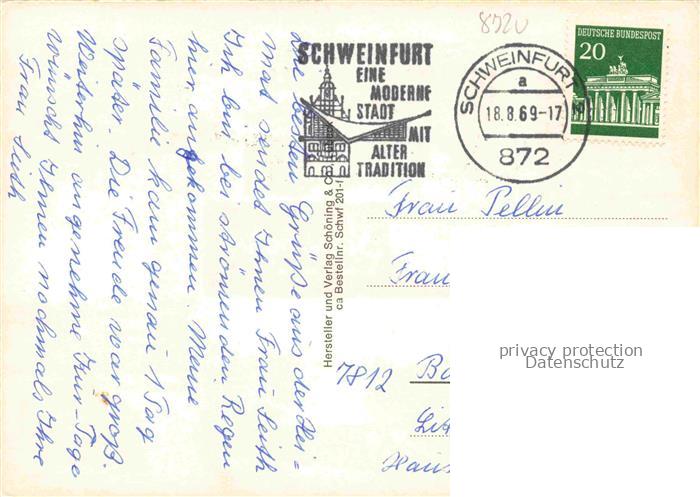 8720
DEUTSCHE BUNDESPOST
20
SCHWEINFURT
EINE
MODERNE
STADT
MIT
ALTER
TRADITION
SCHWEINFURT 2
a
18.8.69-17
872
Die besten Grüße aus der Hei=
mat sendet Ihnen Frau Seith
Ich bin bei strömenden Regen
hier angekommen. Meine
Familie kam genau 1 Tag
später. Die Freude war groß.
Weiterhin angenehme Kur-Tage
wünscht Ihnen nochmals Ihre
Frau Seith
Hersteller und Verlag Schöning & Co
ca Bestellnr. Schwf 201-
Frau Pellin
Frau
7812 Ba
Haus
privacy protection
Datenschutz